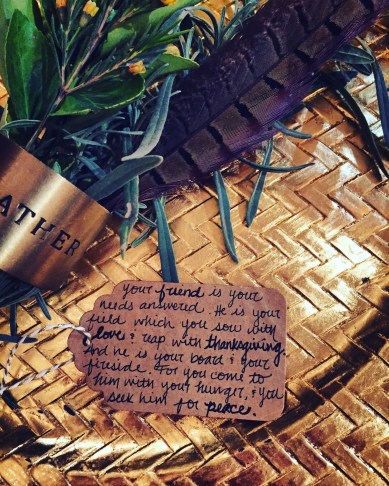 ATHER
your friend is your
needs answered. He is your
field which you sow with
love & reap with thanksgiving.
And he is your board & your
fireside. For you come to
him with your hunger, & you
seek him for peace.